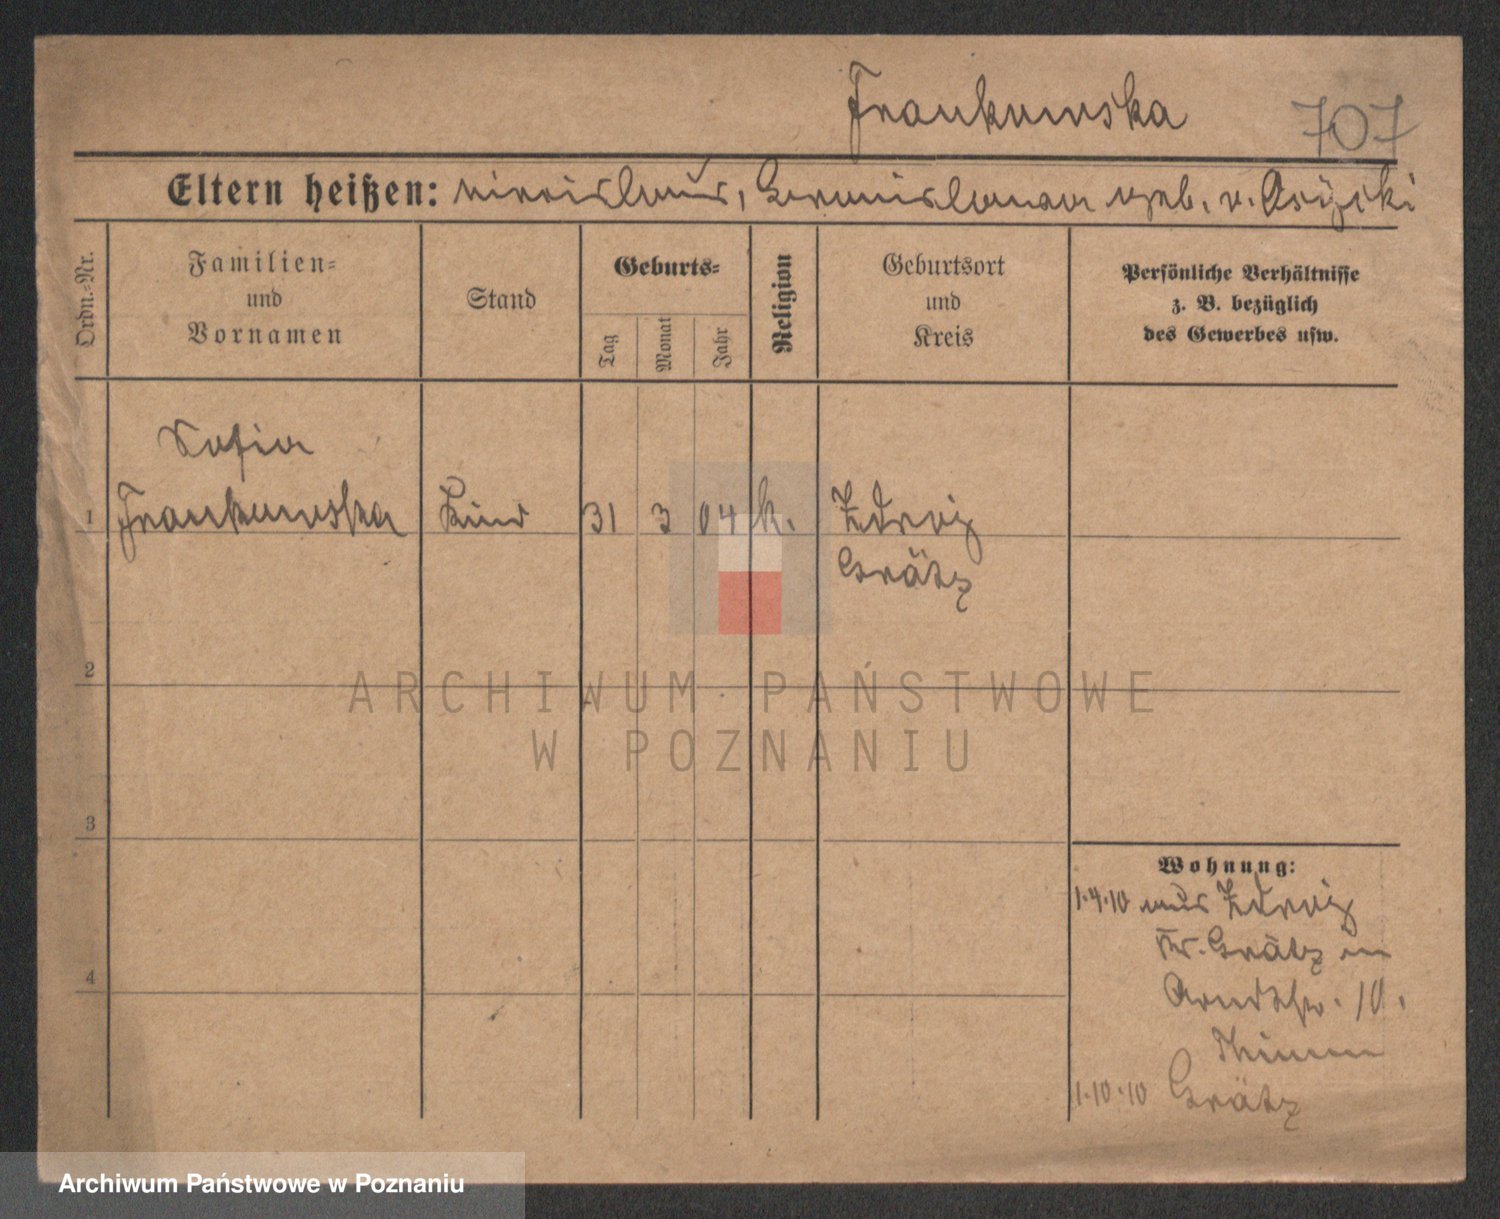 Frankowska 707
Eltern heißen: geb. v.
Ordn.-Nr.
Familien-
und
Vornamen
Stand
Geburts-
Tag
Monat
Jahr
Religion
Geburtsort
und
Kreis
Persönliche Verhältnisse
z. B. bezüglich
des Gewerbes usw.
Sofia
1 Frankowska Kind 31 3 04 k.
Grätz
2
ARCHIWUM PAŃSTWOWE
W POZNANIU
3
Wohnung:
1.4.10 aus
Kr. Grätz in
Arndtstr. 10.
4
1.10.10 Grätz
Archiwum Państwowe w Poznaniu